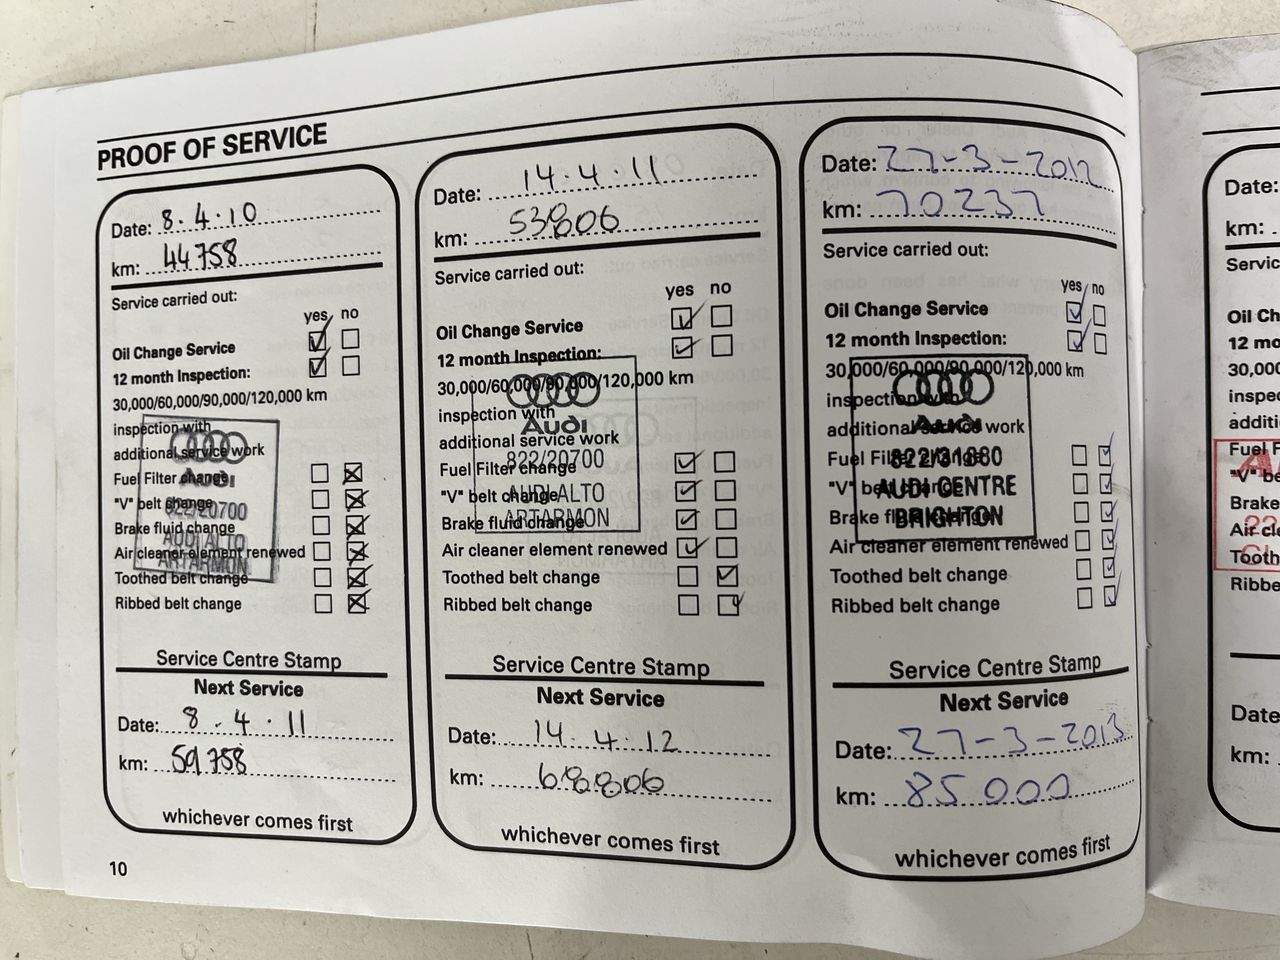 PROOF OF SERVICE
Date: 8.4.10
km: 44758
Service carried out:
yes no
Oil Change Service
12 month Inspection:
30,000/60,000/90,000/120,000 km
inspection with
additional service work
Fuel Filter change
"V" belt change
Brake fluid change
Air cleaner element renewed
Toothed belt change
Ribbed belt change
Audi
822/20700
AUDI ALTO
ARTARMON
Service Centre Stamp
Next Service
Date: 8.4.11
km: 59758
whichever comes first
10
Date: 14.4.11
km: 53806
Service carried out:
yes no
Oil Change Service
12 month Inspection:
30,000/60,000/90,000/120,000 km
inspection with
additional service work
Fuel Filter change
"V" belt change
Brake fluid change
Air cleaner element renewed
Toothed belt change
Ribbed belt change
Audi
822/20700
AUDI ALTO
ARTARMON
Service Centre Stamp
Next Service
Date: 14.4.12
km: 68806
whichever comes first
Date: 27-3-2012
km: 70237
Service carried out:
yes no
Oil Change Service
12 month Inspection:
30,000/60,000/90,000/120,000 km
inspection with
additional service work
Fuel Filter change
"V" belt change
Brake fluid change
Air cleaner element renewed
Toothed belt change
Ribbed belt change
Audi
AUDI CENTRE
BRIGHTON
Service Centre Stamp
Next Service
Date: 27-3-2013
km: 85000
whichever comes first
Date:
km:
Oil
12
30,000
Fuel
"V"
Brake
Air
Date:
km: